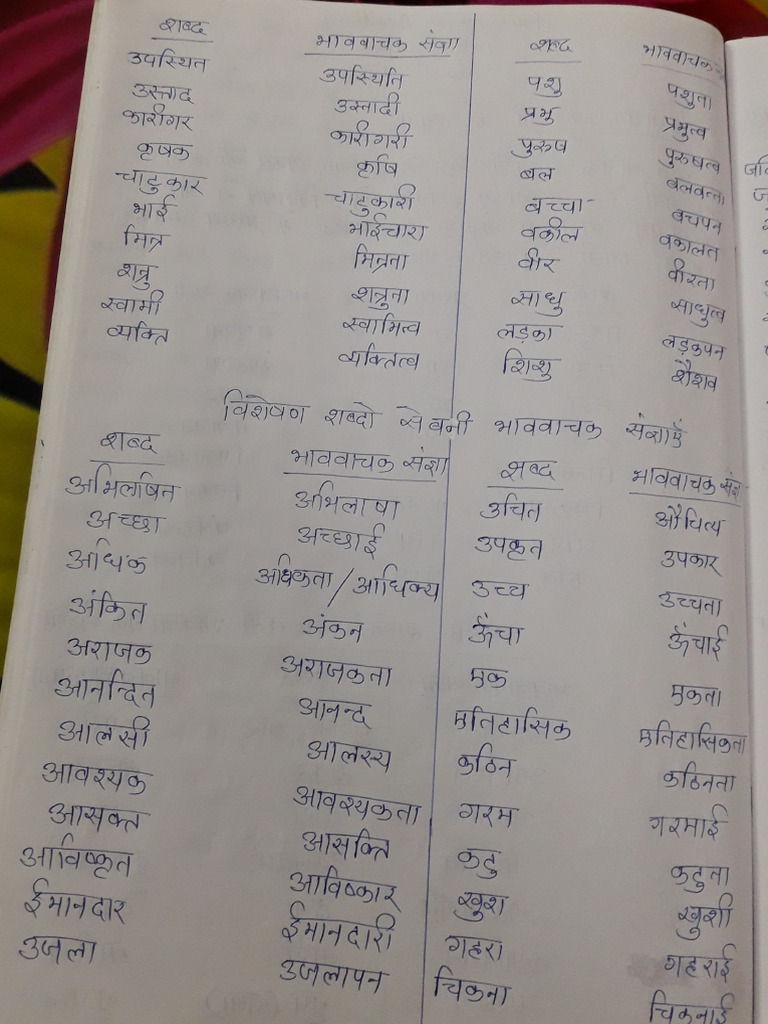 शब्द भाववाचक संज्ञा शब्द भाववाचक
उपस्थित उपस्थिति पशु पशुता
उस्ताद उस्तादी प्रभु प्रभुत्व
कारीगर कारीगरी पुरुष पुरुषत्व
कृषक कृषि बल बलवत्ता
चाटुकार चाटुकारी बच्चा बचपन
भाई भाईचारा वकील वकालत
मित्र मित्रता वीर वीरता
शत्रु शत्रुता साधु साधुत्व
स्वामी स्वामित्व लड़का लड़कपन
व्यक्ति व्यक्तित्व शिशु शैशव
विशेषण शब्दो से बनी भाववाचक संज्ञाएँ
शब्द भाववाचक संज्ञा शब्द भाववाचक संज्ञा
अभिलषित अभिलाषा उचित औचित्य
अच्छा अच्छाई उपकृत उपकार
अधिक अधिकता / आधिक्य उच्च उच्चता
अंकित अंकन ऊँचा ऊँचाई
अराजक अराजकता एक एकता
आनन्दित आनन्द एतिहासिक एतिहासिकता
आलसी आलस्य कठिन कठिनता
आवश्यक आवश्यकता गरम गरमाई
आसक्त आसक्ति कटु कटुता
आविष्कृत आविष्कार खुश खुशी
ईमानदार ईमानदारी गहरा गहराई
उजला उजलापन चिकना चिकनाई